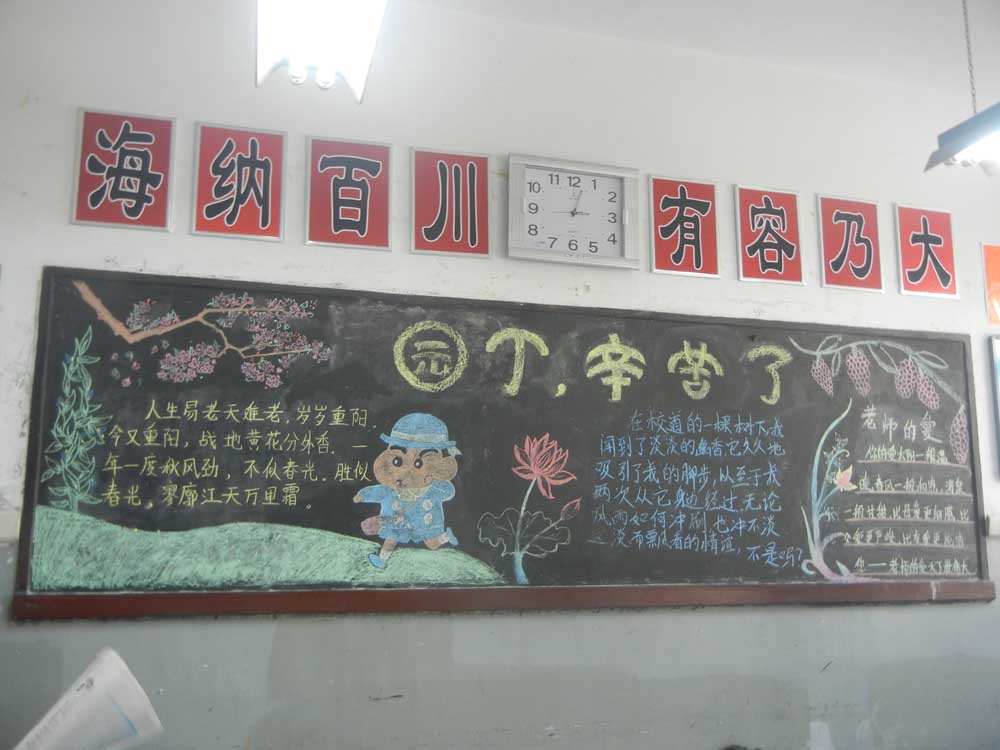 海纳百川
11 12 1
10 2
9 3
8 4
7 6 5
有容乃大
园丁,辛苦了
人生易老天难老,岁岁重阳.
今又重阳,战地黄花分外香.一
年一度秋风劲,不似春光.胜似
春光,寥廓江天万里霜.
在校道的一棵树下,我
闻到了淡淡的幽香它久久地
吸引了我的脚步,以至于我
两次从它身边经过.无论
风雨如何冲刷,也冲不淡
淡布飘着的情谊,不是吗?
老师的爱
你的爱太阳一般温
暖,春风一般和煦,清泉
一般甘甜.比母爱更细腻,比
父爱更严峻,比友爱更纯洁
您——老师的爱天下最伟大